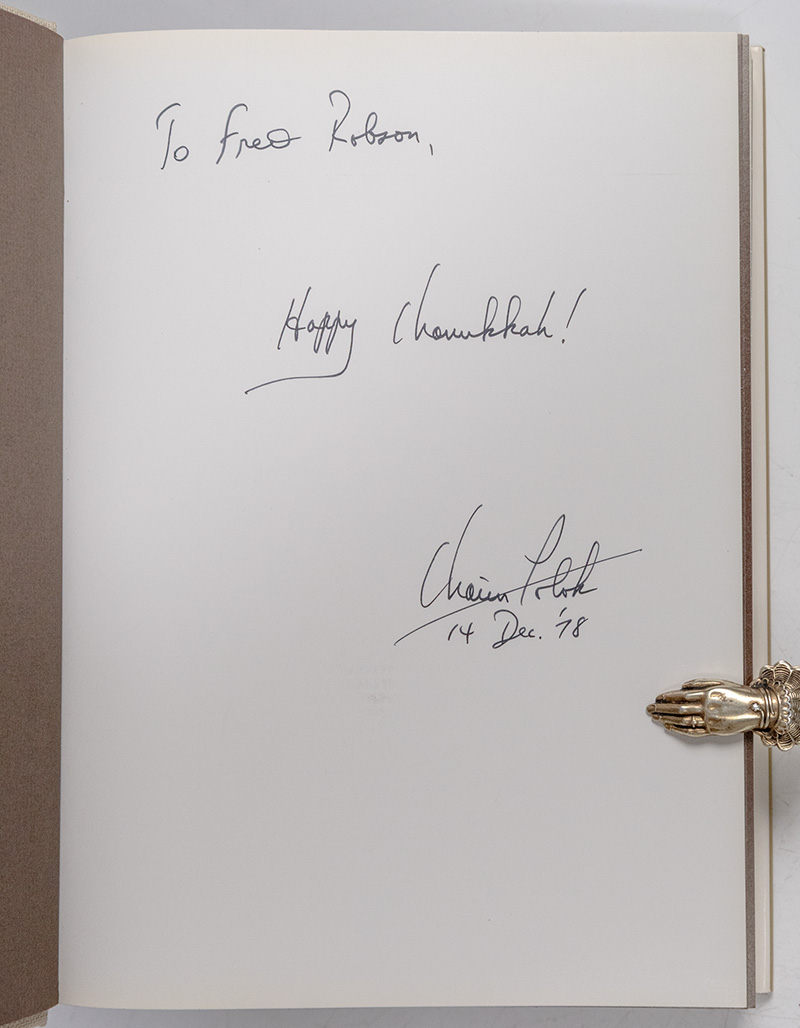 To Fred Robson,
Happy Chanukkah!
Chaim Potok
14 Dec. '78